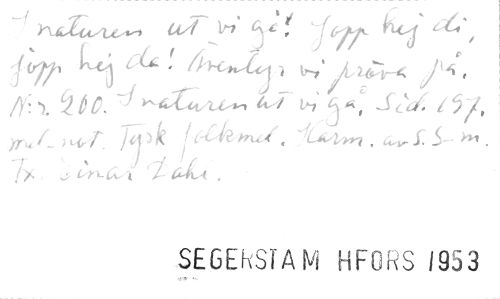 I naturen ut vi gå! Jopp hej di,
jopp hej da! Äventyr vi pröva på.
N:r. 200. I naturen ut vi gå. Sid. 197.
mel.-not. Tysk folkmel. Harm. av S. S-m.
Tx. Einar Dahl.
SEGERSTAM HFORS 1953